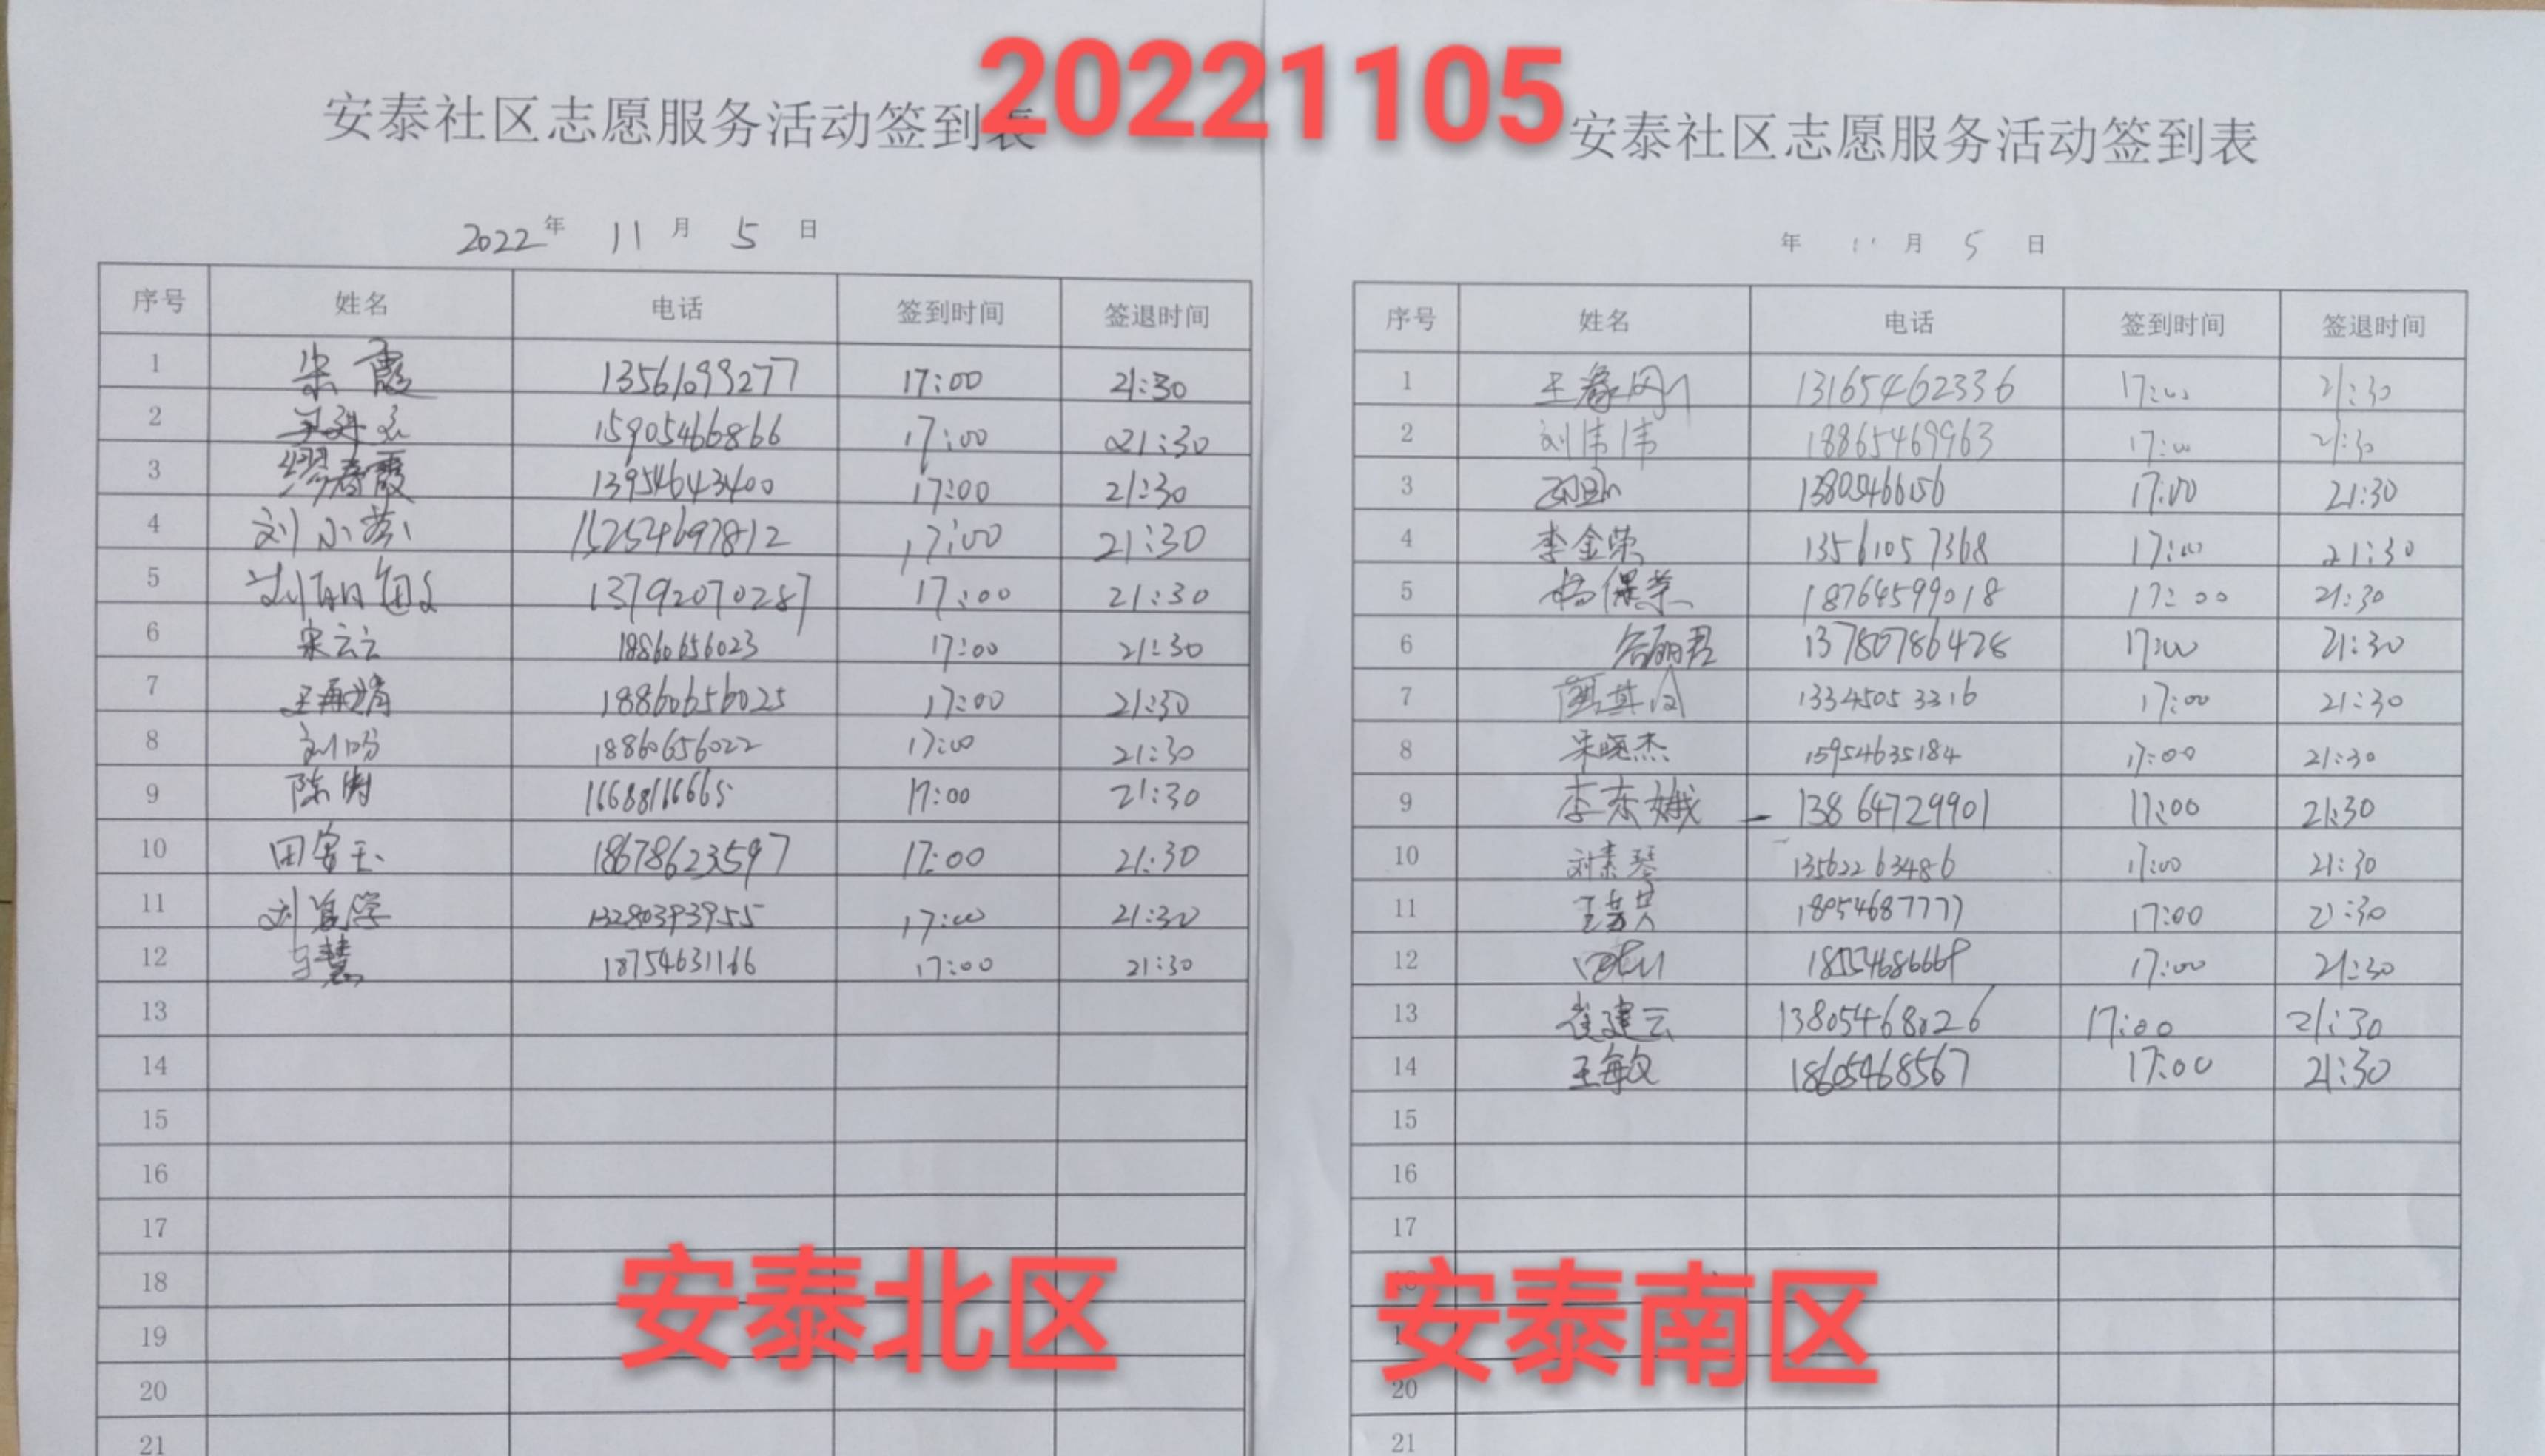 20221105
安泰社区志愿服务活动签到表
2022年 11月 5日
序号 姓名 电话 签到时间 签退时间
1 朱霞 13561099277 17:00 21:30
2 15905466866 17:00 21:30
3 缪春霞 13954643400 17:00 21:30
4 刘小燕 15254697812 17:00 21:30
5 13792070287 17:00 21:30
6 宋云云 18860656023 17:00 21:30
7 王再娟 18860656025 17:00 21:30
8 刘盼 18860656022 17:00 21:30
9 陈树 16688116665 17:00 21:30
10 田安玉 18678623597 17:00 21:30
11 13280393955 17:00 21:30
12 马慧 18754631166 17:00 21:30
13
14
15
16
17
18
19
20
21
安泰北区
安泰社区志愿服务活动签到表
年 11月 5日
序号 姓名 电话 签到时间 签退时间
1 13165462336 17:00 21:30
2 刘伟伟 18865469963 17:00 21:30
3 17:00 21:30
4 李金荣 13561057368 17:00 21:30
5 杨保荣 18764599018 17:00 21:30
6 谷丽君 13780786428 17:00 21:30
7 13345053316 17:00 21:30
8 宋晓杰 15954635184 17:00 21:30
9 李东娥 13864729901 17:00 21:30
10 刘素琴 13562263486 17:00 21:30
11 18054687777 17:00 21:30
12 17:00 21:30
13 崔建云 13805468026 17:00 21:30
14 王敏 18605468567 17:00 21:30
15
16
17
20
21
安泰南区